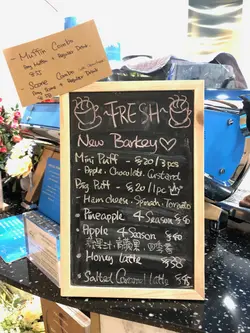 - Muffin Combo
Any Muffin + Regular Drink
- Scone Combo
Any Scone + Regular Drink
~FRESH~
New Barkey
Mini Puff - $20/3pcs
- Apple, Chocolate, Custard
Big Puff - $20/1pc
- Ham cheese, Spinach, Tomato
• Pineapple 4 Season $40
• Apple 4 Season $40
• Honey Latte $38
• Salted Caramel Latte